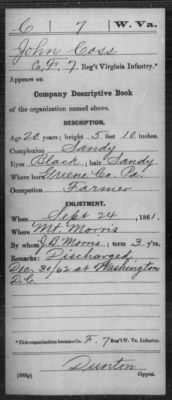 C 7 W. Va.
John Coss
Co. F, 7 Reg't Virginia Infantry.*
Appears on
Company Descriptive Book
of the organization named above.
DESCRIPTION.
Age 20 years; height 5 feet 10 inches.
Complexion Sandy
Eyes Black; hair Sandy
Where born Greene Co. Pa.
Occupation Farmer
ENLISTMENT.
When Sept 24, 1861.
Where Mt. Morris
By whom J. B. Morris; term 3 y'rs.
Remarks: Discharged
Dec. 30/62 at Washington
D.C.
*This organization became Co. F, 7 Reg't W. Va. Infantry.
Dunton
Copyist.